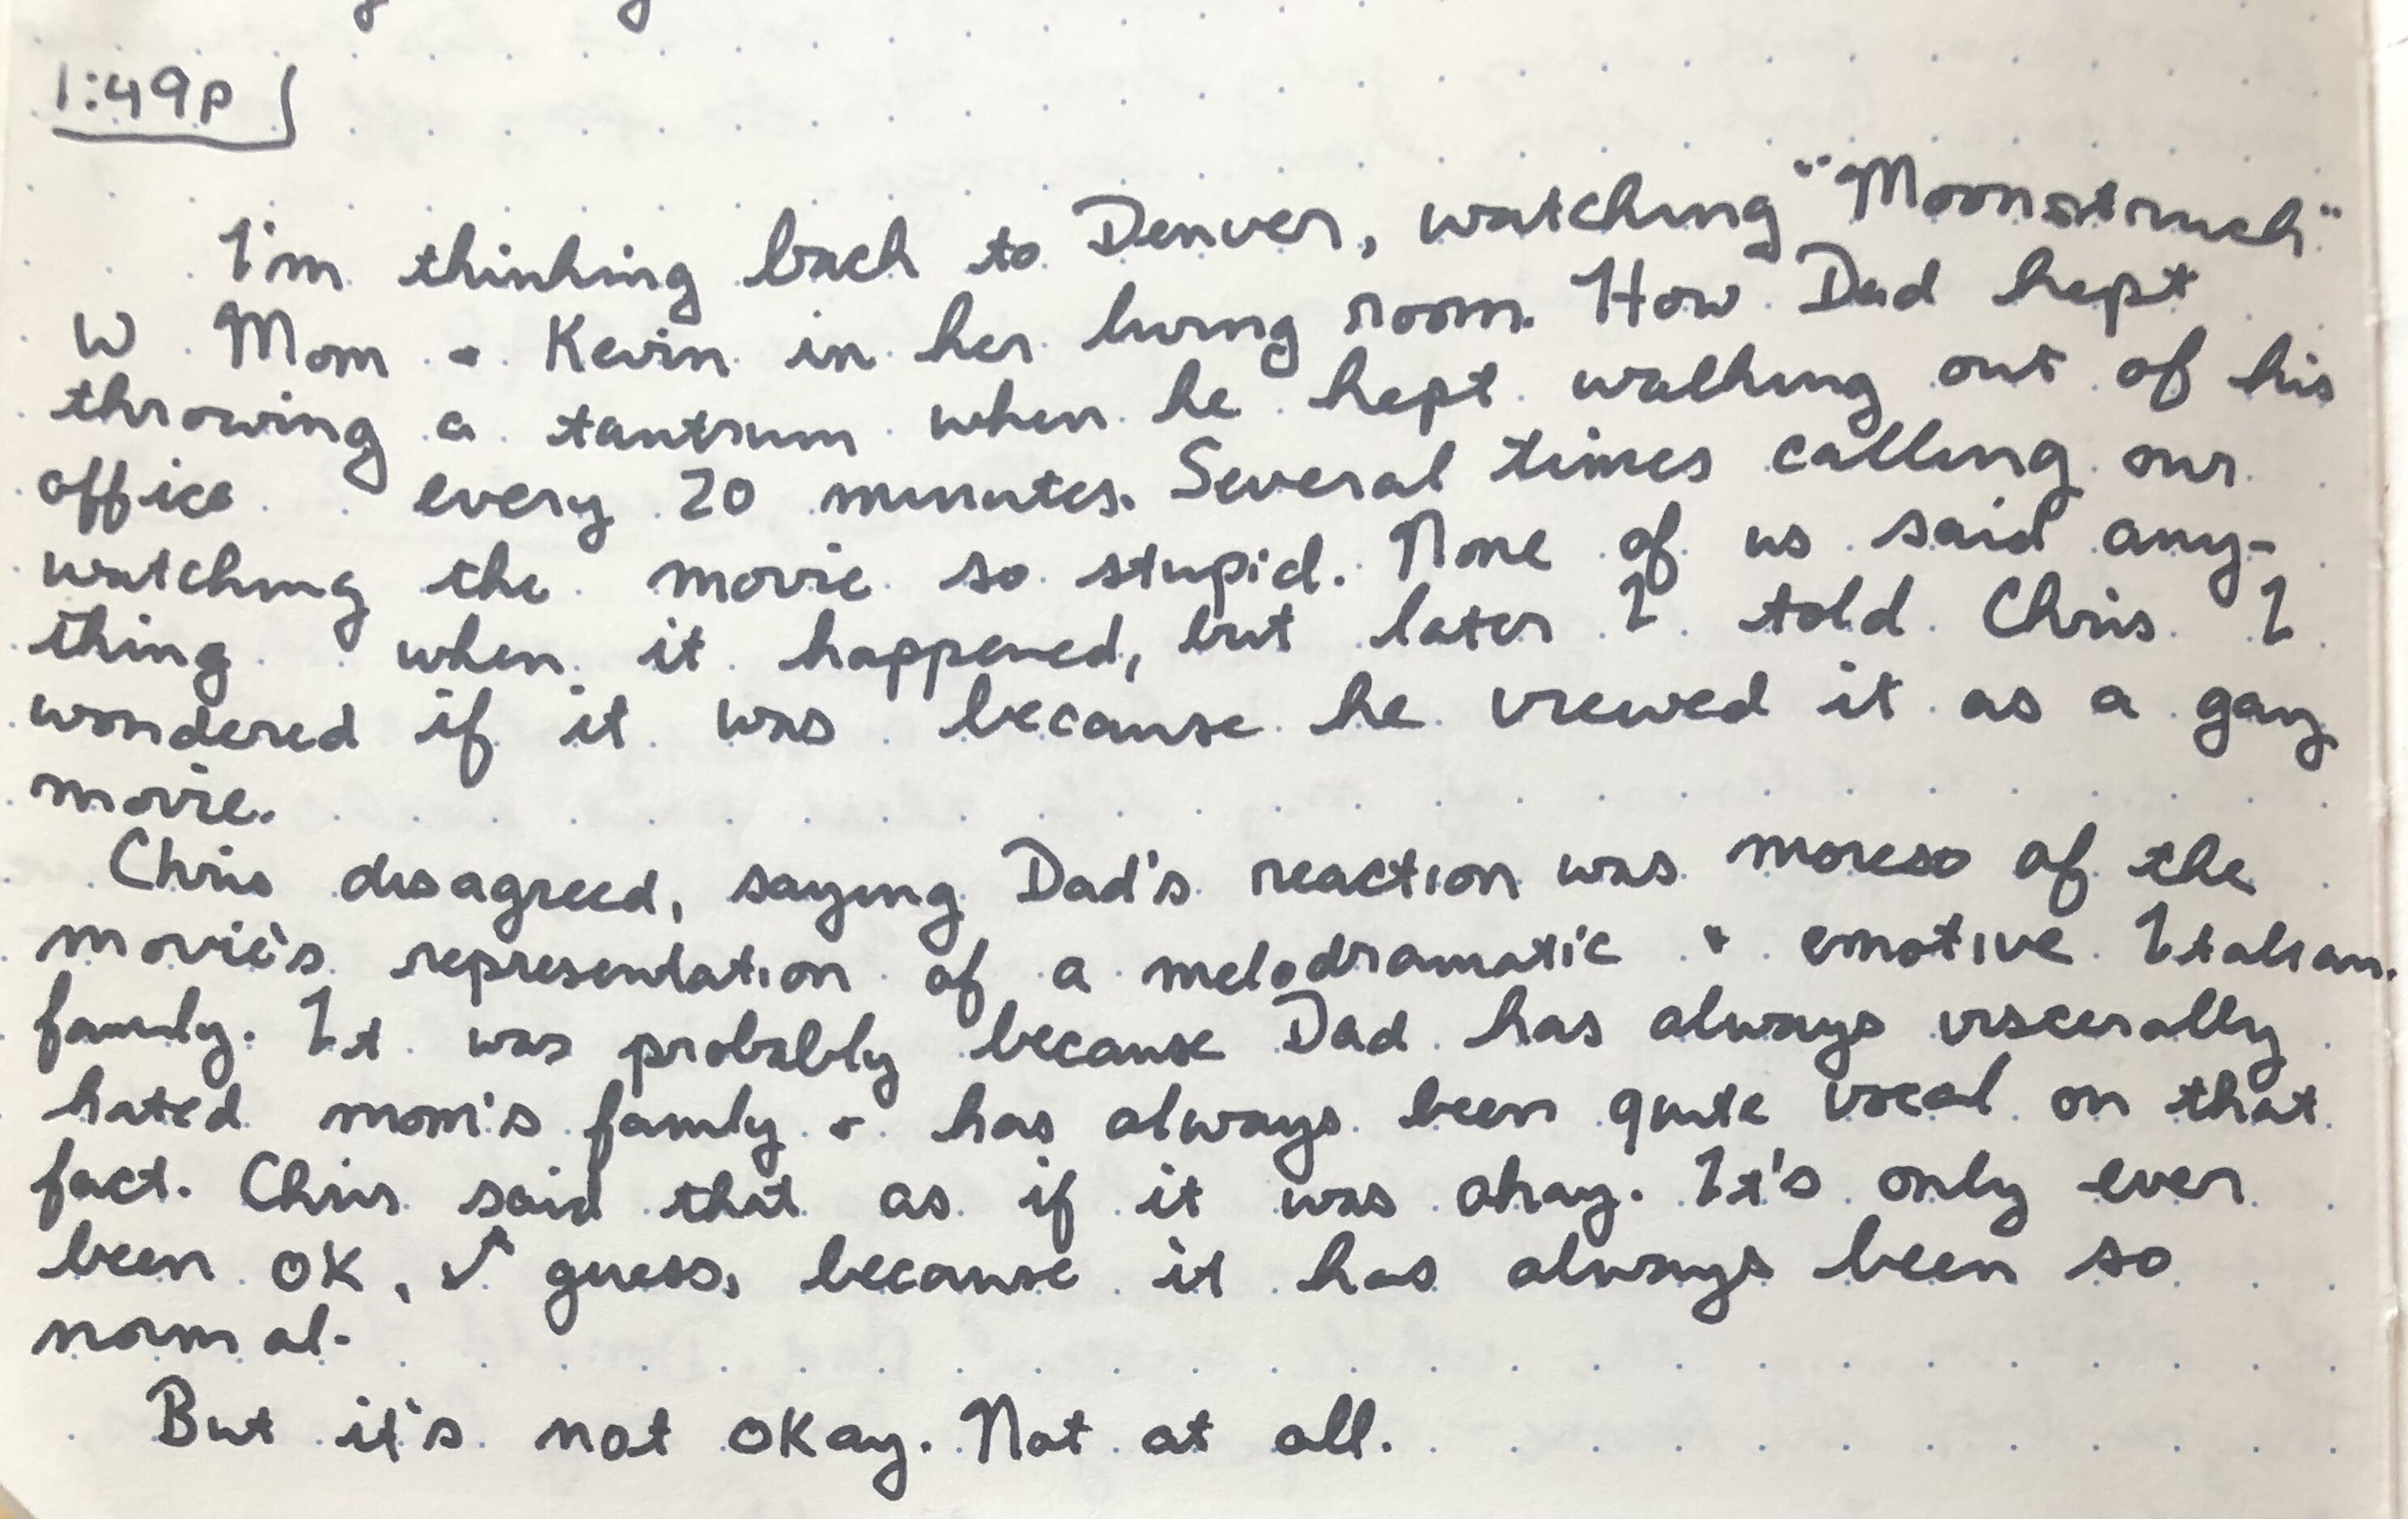 1:49p
I'm thinking back to Denver, watching "Moonstruck"
W Mom + Kevin in her living room. How Dad kept
throwing a tantrum when he kept walking out of his
office every 20 minutes. Several times calling our
watching the movie so stupid. None of us said any-
thing when it happened, but later I told Chris I
wondered if it was because he viewed it as a gay
movie.
Chris disagreed, saying Dad's reaction was moreso of the
movie's representation of a melodramatic + emotive Italian
family. It was probably because Dad has always viscerally
hated mom's family + has always been quite vocal on that
fact. Chris said that as if it was okay. It's only ever
been OK, I guess, because it has always been so
normal.
But it's not okay. Not at all.